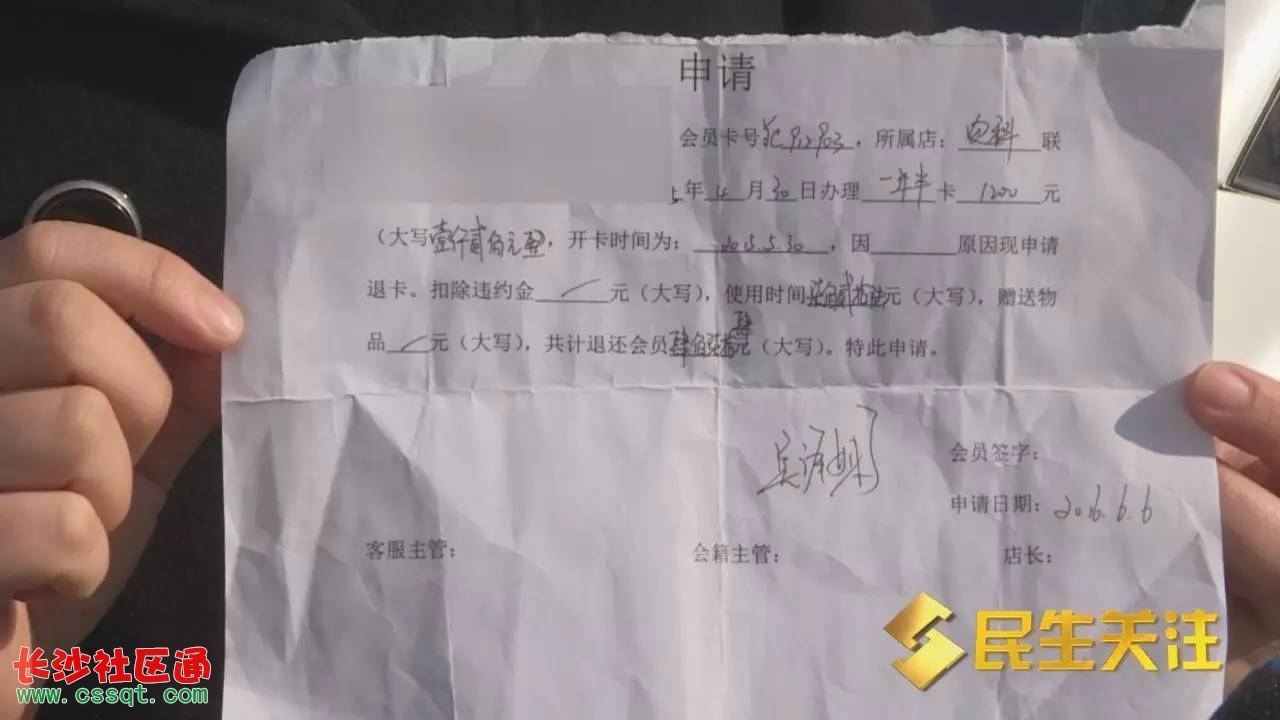 申请
会员卡号 912903，所属店：电科联
年4月30日办理一年半卡1200元
（大写壹仟贰佰元整，开卡时间为：2015.5.30，因原因现申请
退卡。扣除违约金元（大写），使用时间元（大写），赠送物
品元（大写），共计退还会员元（大写）。特此申请。
会员签字：
申请日期：2016.6.6
客服主管： 会籍主管： 店长：
民生关注
长沙社区通
www.cssqt.com